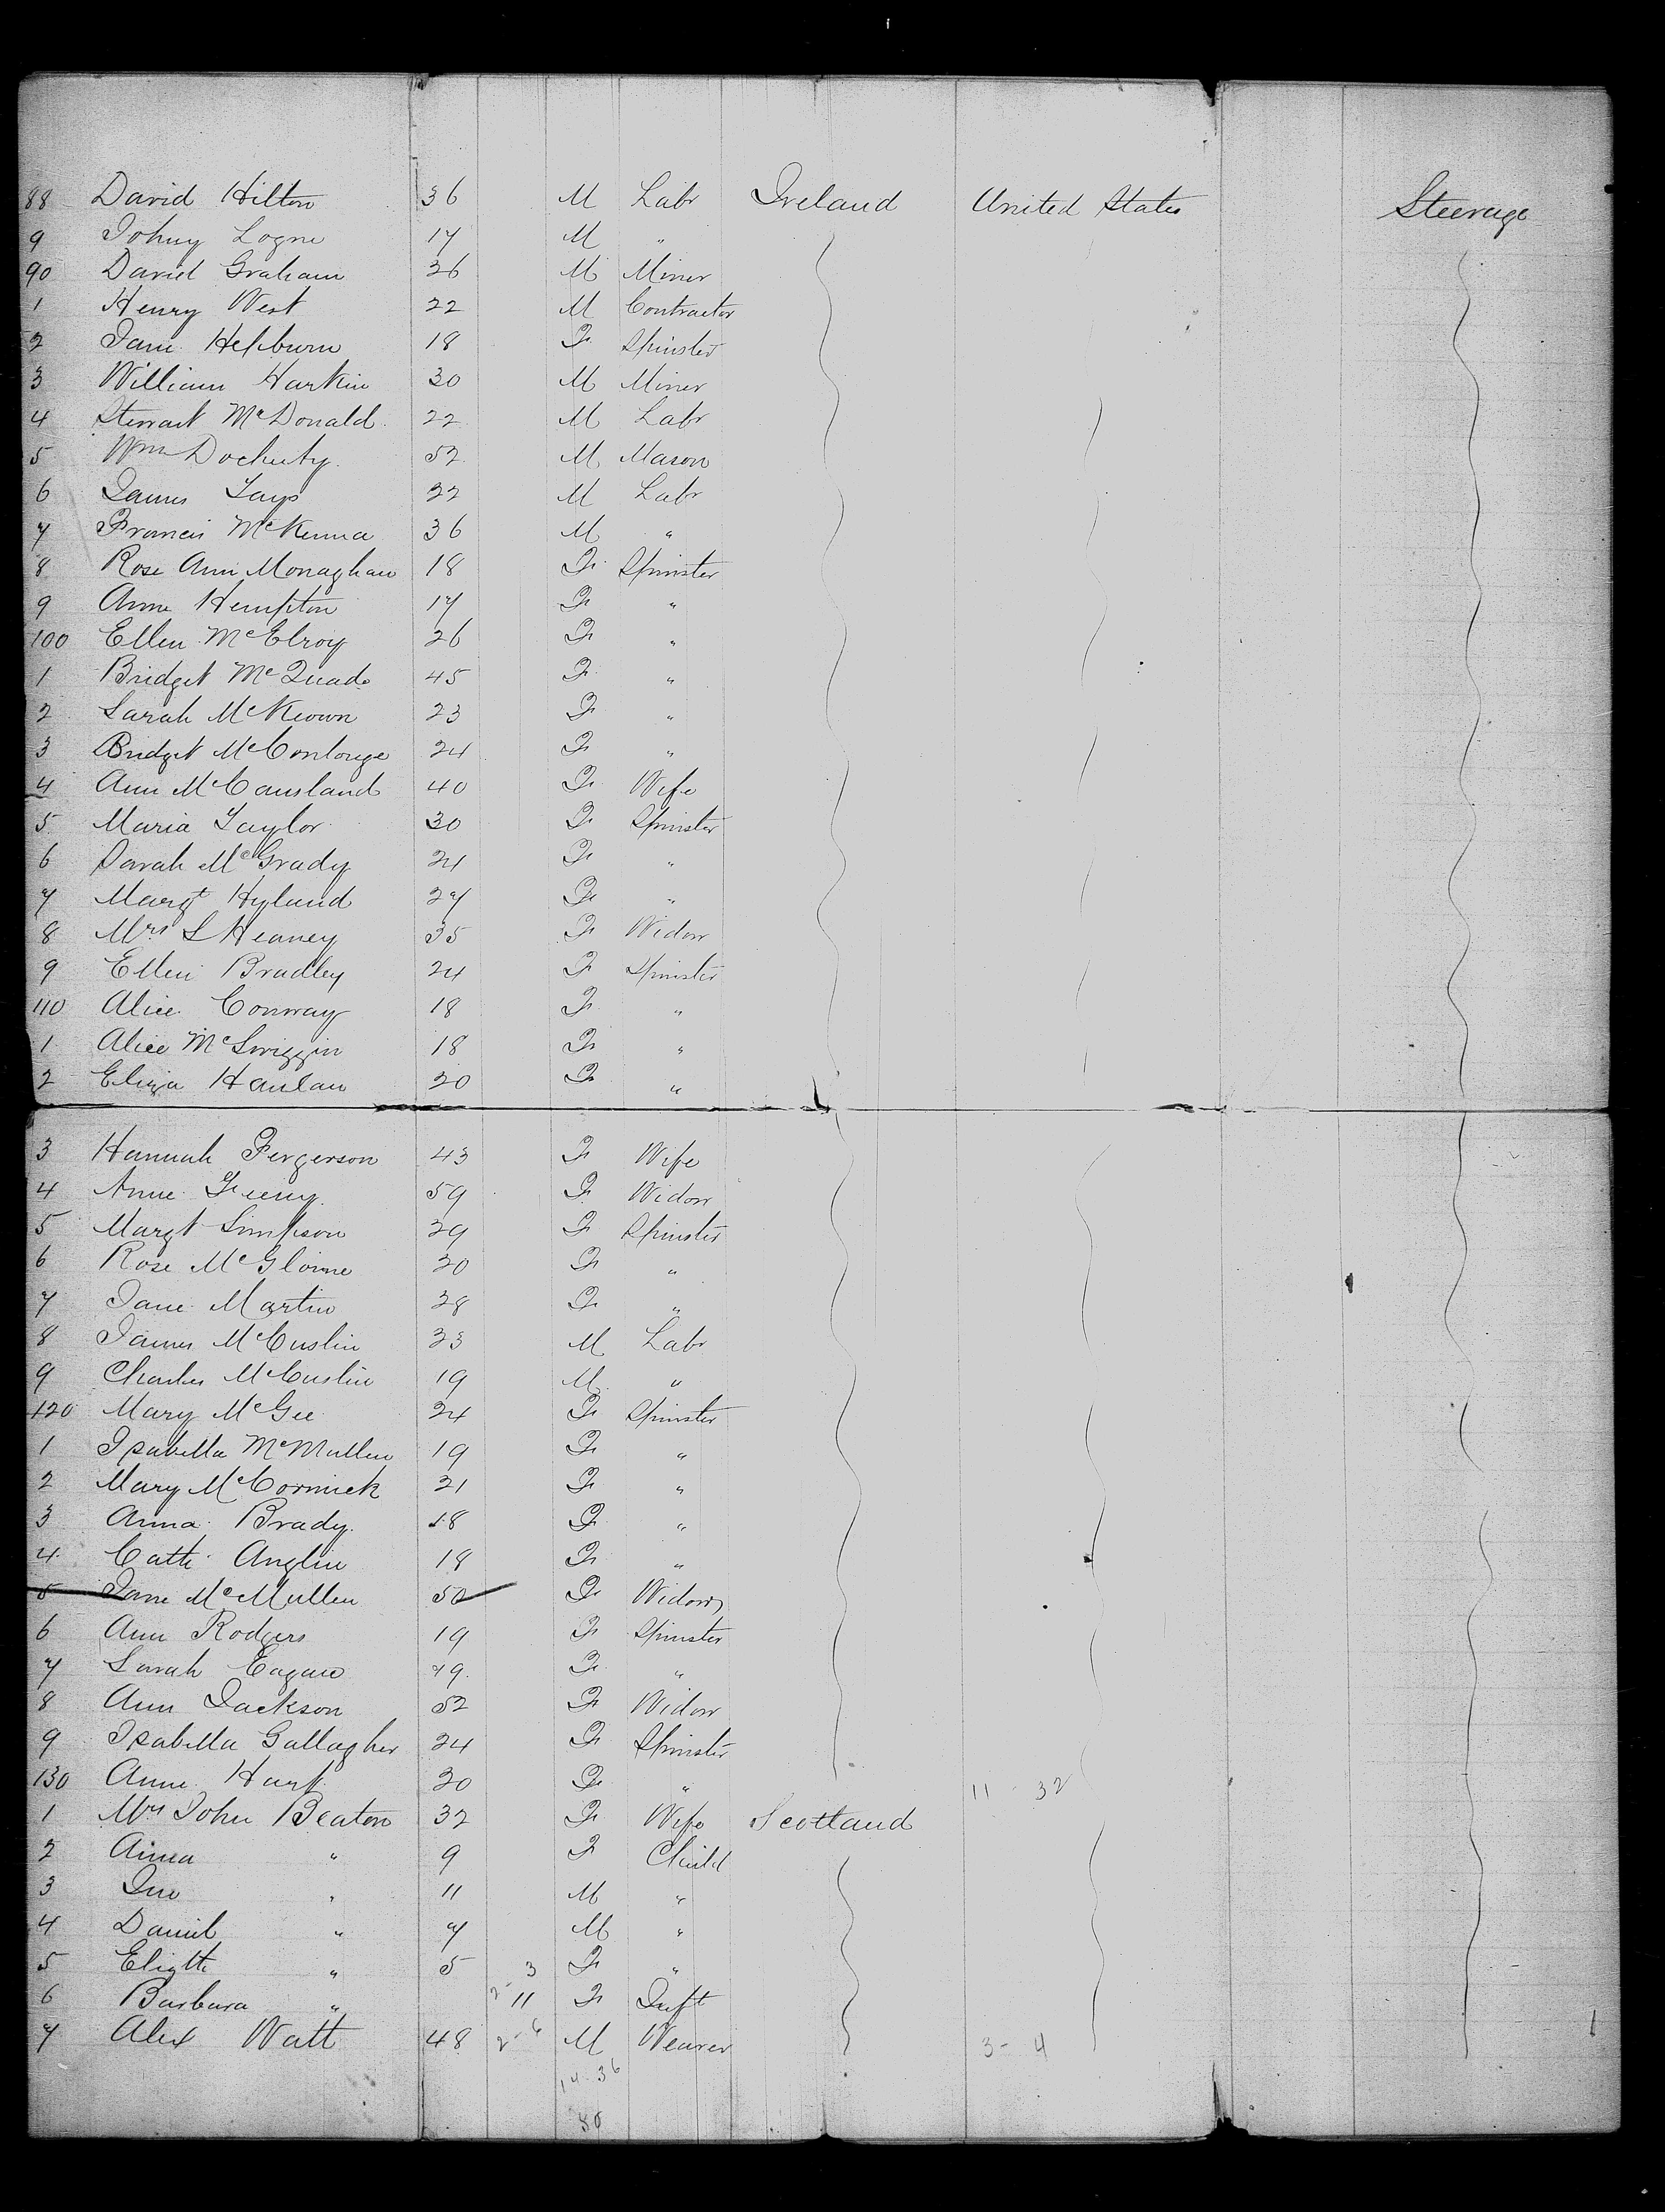 88 David Hilton 36 M Labr Ireland United States Steerage
9 Johny Logne 17 M "
90 David Graham 36 M Miner
1 Henry West 22 M Contractor
2 Jane Hepburn 18 F Spinster
3 William Harkin 30 M Miner
4 Stewart McDonald 22 M Labr
5 Wm Docherty 52 M Mason
6 James 22 M Labr
7 Francis McKenna 36 M "
8 Rose Ann Monaghan 18 F Spinster
9 Anne Hempton 17 F "
100 Ellen McElroy 26 F "
1 Bridget McQuade 45 F "
2 Sarah McKeown 23 F "
3 Bridget McConlouge 24 F "
4 Ann McCausland 40 F Wife
5 Maria Taylor 30 F Spinster
6 Sarah McGrady 21 F "
7 Margt Hyland 27 F "
8 Mrs S Heaney 35 F Widow
9 Ellen Bradley 24 F Spinster
110 Alice Conway 18 F "
1 Alice McSwiggin 18 F "
2 Eliza Hanlan 20 F "
3 Hannah Fergerson 43 F Wife
4 Anne Feeny 59 F Widow
5 Margt Simpson 29 F Spinster
6 Rose McGloine 20 F "
7 Jane Martin 28 F "
8 James McCuslin 23 M Labr
9 Charles McCuslin 19 M "
120 Mary McGee 24 F Spinster
1 Isabella McMullen 19 F "
2 Mary McCormick 21 F "
3 Anna Brady 18 F "
4 Cath Anglin 18 F "
5 Jane McMullen 50 F Widow
6 Ann Rodgers 19 F Spinster
7 Sarah Eagan 19 F "
8 Ann Jackson 52 F Widow
9 Isabella Gallagher 24 F Spinster
130 Anne Hark 20 F " 11 - 32
1 Mrs John Beaton 32 F Wife Scotland
2 Annea " 9 F Child
3 Jno " 11 M "
4 Daniel " 7 M "
5 Elizth " 5 3 F "
6 Barbara " 2- 11 F Inft
7 Alex Watt 48 2-6 M Weaver 3- 4
14-36
50